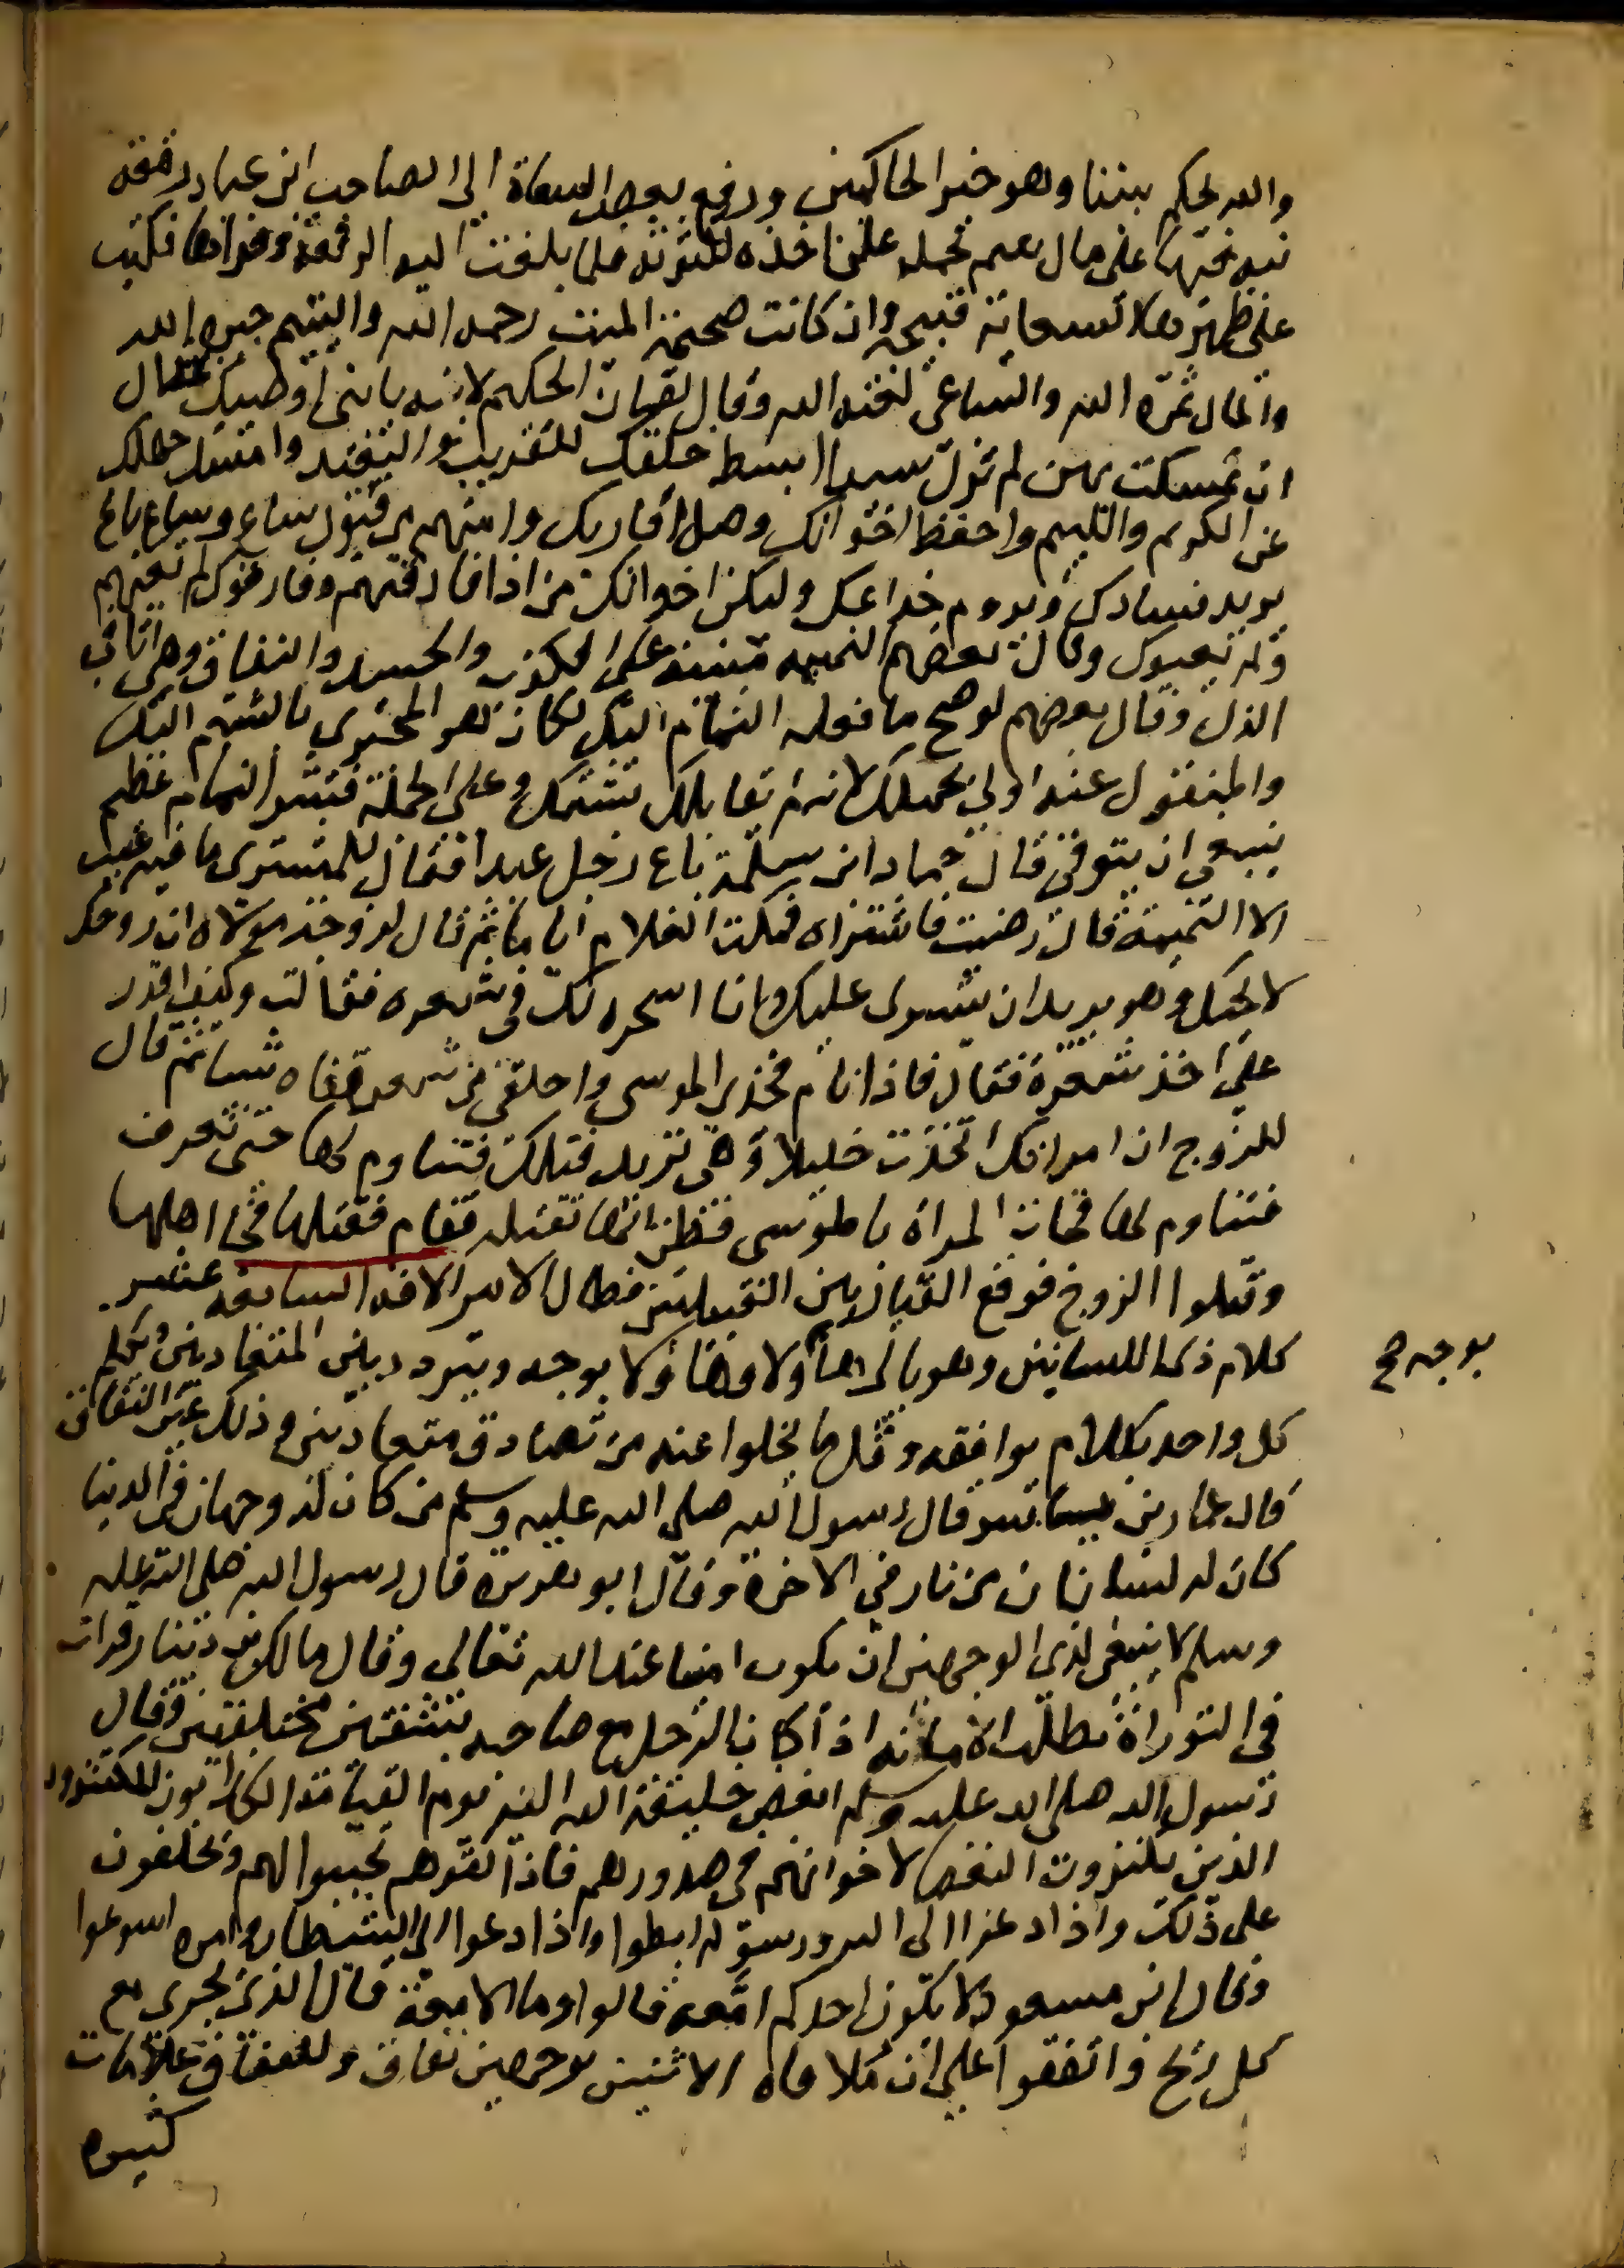 والله يحكم بيننا وهو خير الحاكمين ورفع بعض السعاة الى الصاحب ابن عباد رقعة
نبه فيها على مال يتيم يحمله على اخذه لكثرته فلما بلغت اليه الرقعة وقراها فكتب
على ظهرها السعاية قبيحة وان كانت صحيحة الميت رحمه الله واليتيم جبره الله
والمال ثمره الله والساعي لعنه الله وقال لقمان الحكيم لابنه يا بني اوصيك بخصال
ان تمسكت بهن لم تزل سيدا ابسط خلقك للقريب والبعيد وامسك جهلك
عن الكريم واللئيم واحفظ اخوانك وصل اقاربك وامنهم من قبول ساع وسماع باغ
يريد فسادك ويروم خداعك وليكن اخوانك من اذا فارقتهم وفارقوك لم تعبهم
ولم يعيبوك وقال بعضهم النميمه مبنية على الكذب والحسد والنفاق وهي اثافي
الذل وقال بعضهم لو صح ما نقله النمام اليك لكان هو المجتري بالشتم اليك
والمنقول عنه اولى بحملك لانه لم يقابلك بشتمك وعلى الجملة فشر النمام عظيم
ينبغي ان يتوقى قال حماد ابن سلمة باع رجل عبدا فقال للمشتري ما فيه عيب
الا النميمة قال رضيت فاشتراه فمكث الغلام اياما ثم قال لزوجة مولاه ان زوجك
لا يحبك وهو يريد ان يتسرى عليك وانا اسحره لك في شعره فقالت وكيف اقدر
على اخذ شعره فقال فاذا نام فخذي الموسى واحلقي من شعر قفاه شيا ثم قال
للزوج ان امراتك اتخذت خليلا وهي تريد قتلك فتناوم لها حتى تعرف
فتناوم لها فجات المراة بالموسى فظن انها تقتله فقام فقتلها فجا اهلها
وقتلوا الزوج فوقع القتال بين القبيلتين فطال الامر الافة السابعة عشر
كلام ذي اللسانين وهو يا لي هما ولا وها ولا بوجه ويتردد بين المتعاديين ويكلم
بوجه صح
كل واحد بكلام يوافقه وقل ما يخلوا عنه من يصادق متعاديين وذلك عين النفاق
قال عمار بن ياسر قال رسول الله صلى الله عليه وسلم من كان له وجهان في الدنيا
كان له لسانان من نار في الاخرة وقال ابو هريرة قال رسول الله صلى الله عليه
وسلم لا ينبغي لذي الوجهين ان يكون امينا عند الله تعالى وقال مالك بن دينار قرات
في التوراة بطلت الامانه اذا كان الرجل مع صاحبه بشفتين مختلفتين وقال
رسول الله صلى الله عليه وسلم ابغض خليقة الله اليه يوم القيامة الكذابون المكثرون
الذين يكنزون البغض لاخوانهم في صدورهم فاذا لقوهم تحببوا لهم ويحلفون
على ذلك واذا دعوا الى الله ورسوله ابطوا واذا دعوا الى الشيطان وامره اسرعوا
وقال ابن مسعود لا يكون احدكم امعه قالوا وما الامعة قال الذي يجري مع
كل ريح واتفقوا على ان ملاقاه الاثنين بوجهين نفاق وللنفاق علامات
كثيره